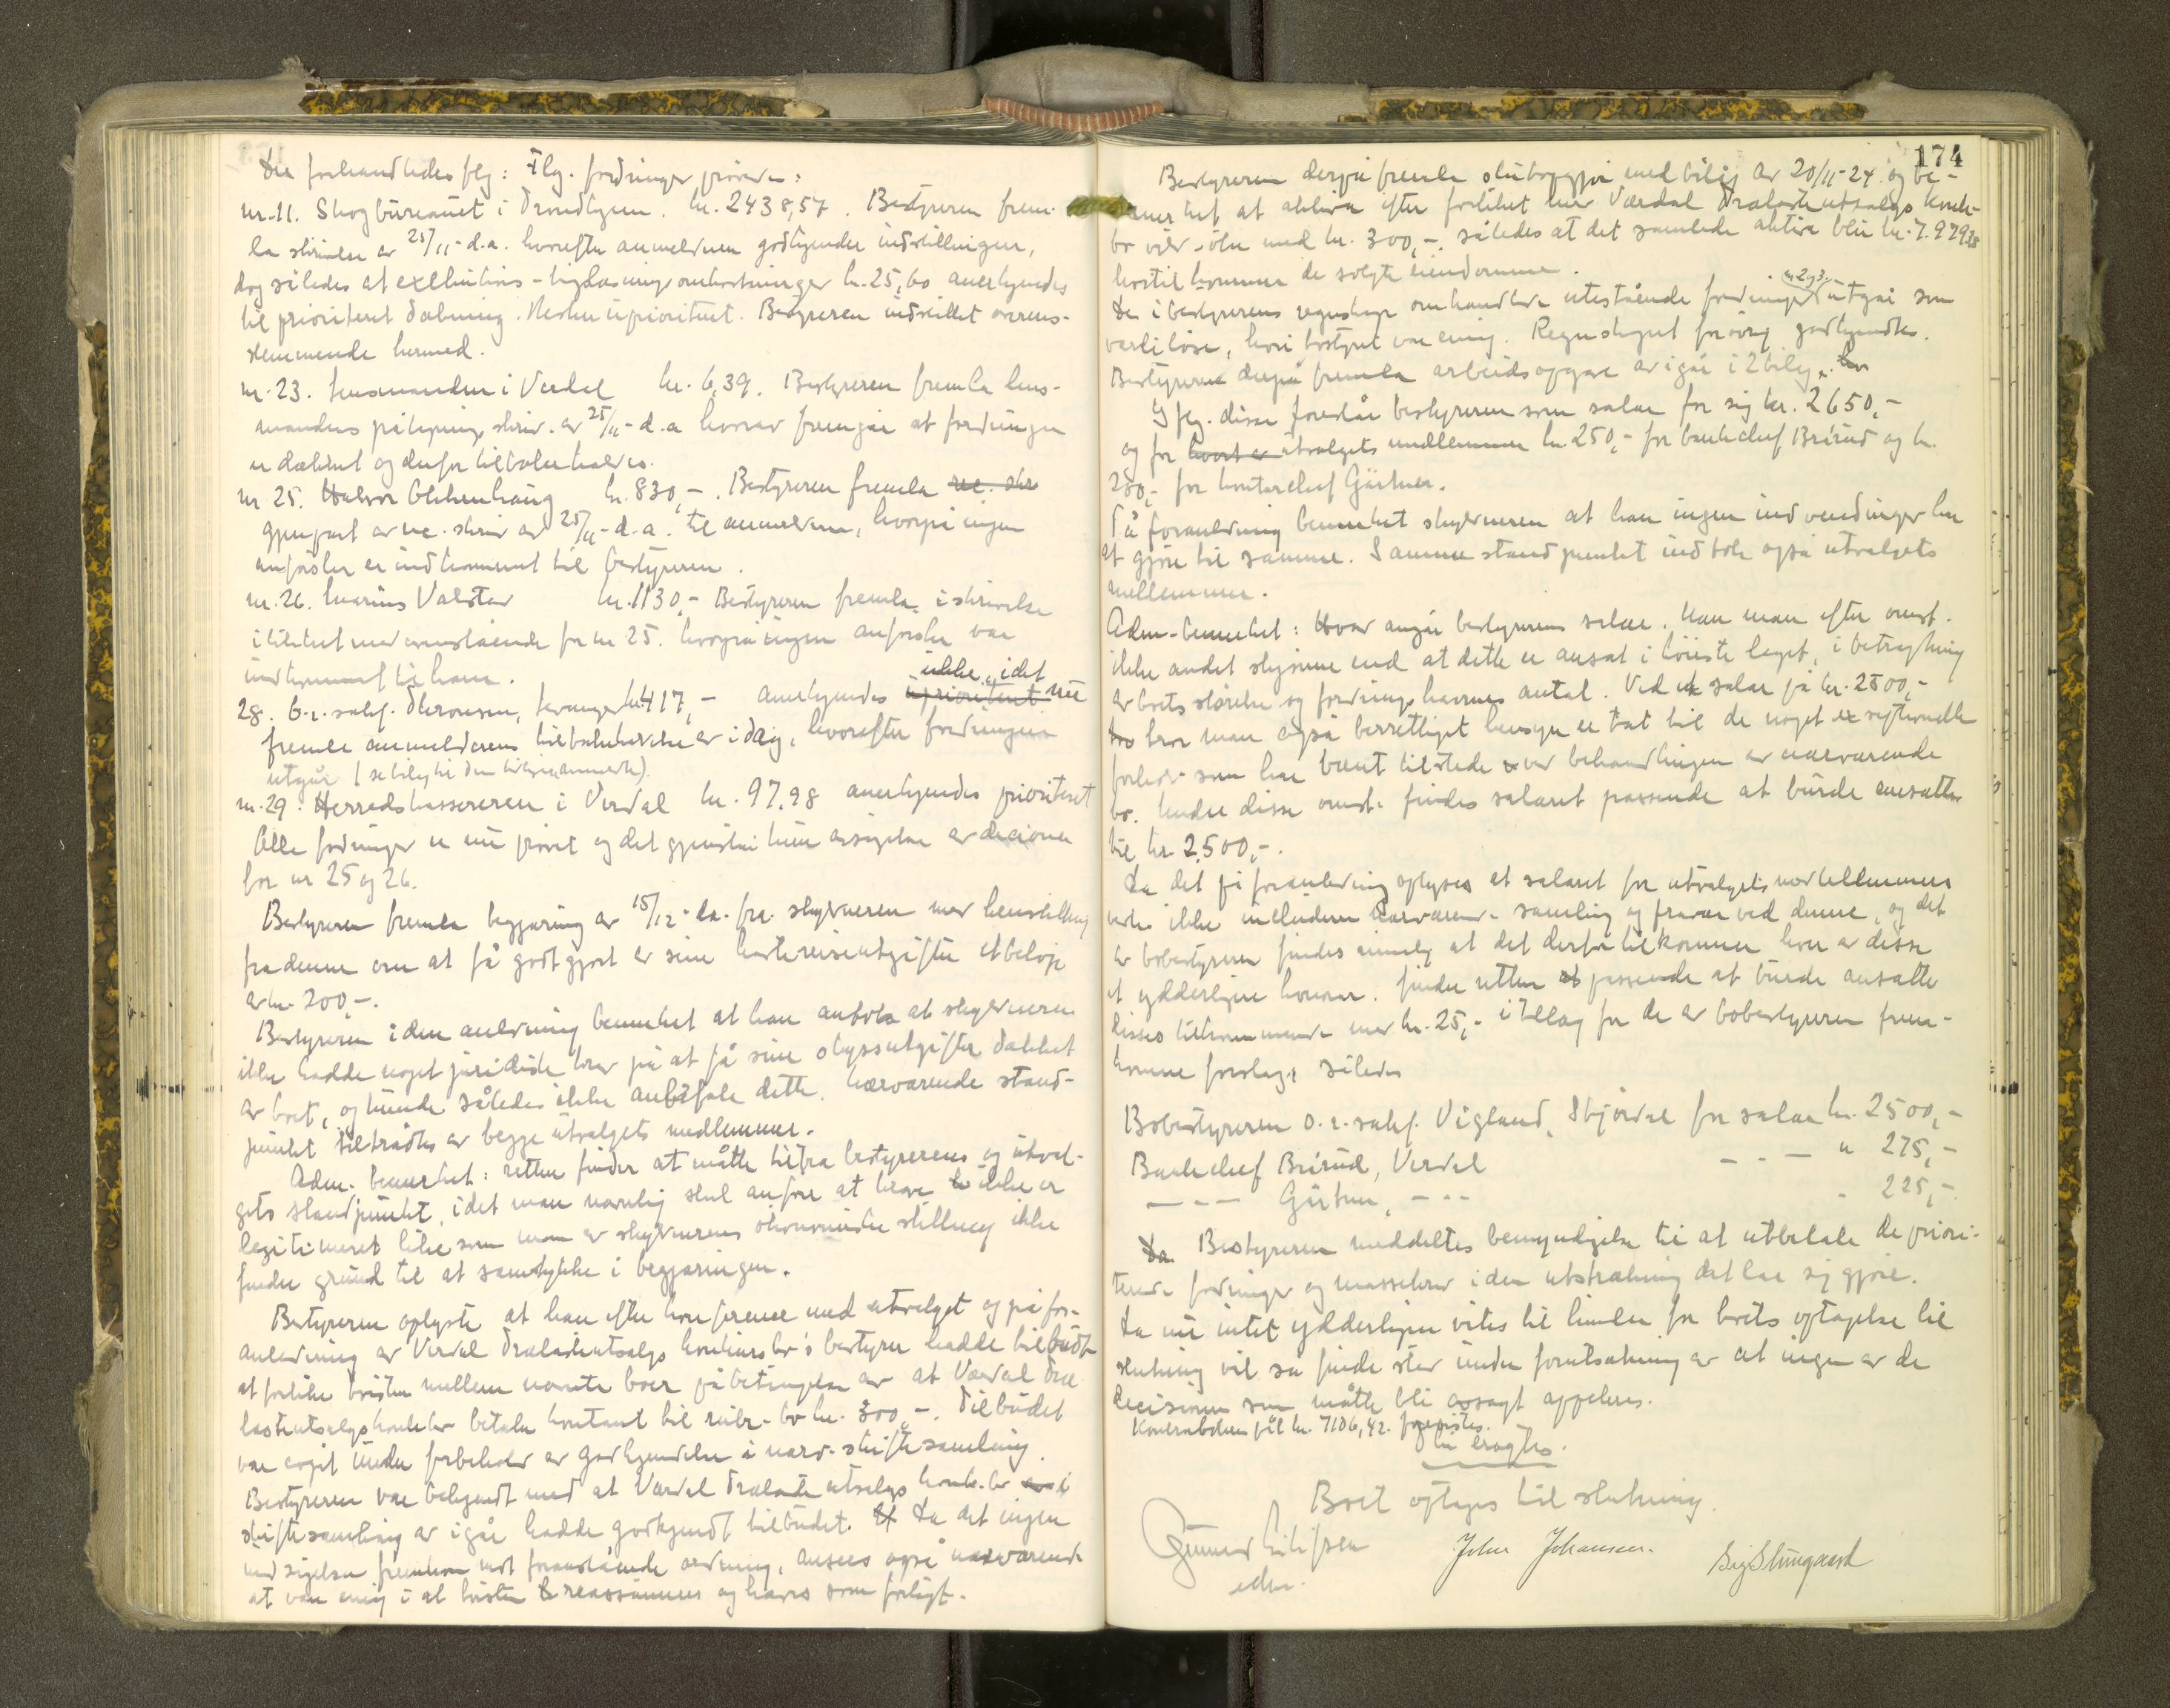 Der forhandledes flg: Flg. fordringer prøvedes:
nr. 11. Skogbureauet i Trondhjem. kr. 2438,57. Bestyreren frem-
la skrivelse av 25/11- d.a. hvorefter anmelderen godkjender indstillingen,
dog således at exekutions - omkostninger kr. 25,60 anerkjendes
til prioritert dækning. Resten uprioritert. Bestyreren indstillet overens-
stemmende hermed.
nr. 23. Lensmanden i Verdal kr. 6,39. Bestyreren fremla lens-
mandens påtegning skriv. av 25/11- d.a hvorav fremgår at fordringen
er dækket og derfor tilbakekaldes.
nr 25. Halvor Okkenhaug kr. 830,-. Bestyreren fremla rec. skr
gjenpart av rec. skriv av 25/11- d.a. til anmelderen, hvorpå ingen
anførsler er indkommet til bestyreren.
nr. 26. Marius Valstad kr. 1130,- Bestyreren fremla i skrivelse
i likhet med ovenstående for nr 25. hvorpå ingen anførsler var
indkommet til ham.
ikke, idet
28. o.r. sakf. Thronsen, Levanger kr. 417,- anerkjendes uprioritert nu
fremla anmelderens tilbakekaldelse av idag, hvorefter fordringen
utgår (se bilag til den tilbakeanmeldte).
nr. 29. Herredskassereren i Verdal kr. 97,98 anerkjendes prioritert
Alle fordringer er nu prøvet og det gjenstår kun avsigelse av decisioner
for nr 25 og 26.
Bestyreren fremla begjæring av 15/12- da. fra skyldneren med henstilling
fra denne om at få godtgjort av sine reiseutgifter et beløp
av kr. 200,-.
Bestyreren i den anledning bemerket at han antok at skyldneren
ikke hadde noget juridisk krav på at få sine skyssutgifter dækket
av boet, og kunde således ikke anbefale dette. Nærværende stand-
punkt tiltrådtes av begge utvalgets medlemmer.
Adm. bemerket: retten finder at måtte tiltræ bestyrerens og utval-
gets standpunkt, idet man nemlig skal anføre at kravet ikke er
legitimeret like som man av skyldnerens økonomiske stilling ikke
finder grund til at samtykke i begjæringen.
Bestyreren oplyste at han efter konferense med utvalget og på for-
anledning av Verdal Trælastutsalgs konkursbo's bestyrer hadde tilbudt
at forlike tvisten mellem nævnte boer på betingelse av at Værdal Træ
lastutsalgs konk.bo betaler kontant til rubr.- bo kr. 300,-. Tilbudet
var avgit under forbehold av godkjendelse i nærv. skiftesamling.
Bestyreren var bekjendt med at Værdal Trælastutsalgs konk. bo i
skiftesamling av igår hadde godkjendt tilbudet. Da det ingen
indsigelse fremkom mot foranstående ordning, ansees også nærværende
at være enig i at tvisten reassummeres og hæves som forligt.

174
Bestyreren derpå fremla sluttopgjør med bilag av 20/11-24. og be-
merket at aktiva efter forliket med Værdal Trælastutsalgs konk-
bo vil øke med kr. 300,-. således at det samlede aktiva blir kr. 7.979,38
hertil kommer de solgte eiendomme.
nr 2 og 3.
De i bestyrerens regnskap omhandlede utestående fordringer utgår som
værdiløse, hvori bostyret var enig. Regnskapet forøvrig godkjendtes.
Bestyreren derpå fremla arbeidsopgave av igår i 2 bilag.
Ifg. disse foreslår bestyreren som salær for sig kr. 2650,-
og for hvert av utvalgets medlemmer kr. 250,- for bankchef Brirud og kr.
200,- for kontorchef Gärtner.
På foranledning bemerket skyldneren at han ingen indvendinger har
at gjøre til samme. Samme standpunkt indtok også utvalgets
mellemmer.
Adm. bemerket: Hvad angår bestyrerens salær. kan man efter omst.
ikke andet skjønne end at dette er ansat i høieste laget, i betragtning
av boets størrelse og fordringshavernes antal. Ved et salær på kr. 2500,-
tro bror man også berettiget hensyn er tat til de noget exceptionelle
forhold som har været tilstede ved behandlingen av nærværende
bo. Under disse omst. findes salæret passende at burde ansættes
til kr. 2.500,-.
Da det på foranledning oplyses at salæret for utvalgets medlemmer
ikke includerer nærværende samling og fravær ved denne, og det
av bobestyreren findes rimelig at det derfor tilkommer hver av disse
et ydderligere honorar. finder retten passende at burde ansætte
disses tilkommende med kr. 25,- i tillæg for de av bobestyreren frem-
komne forslag; således
Bobestyreren o.r. sakf. Vigland, Stjørdal for salær kr. 2500,-
Bankchef Brirud, Verdal - - - " 275,-
- - - Gärtner, - - - " 225,-
Da Bestyreren meddeltes bemyndigelse til at utbetale de priori-
terede fordringer og massekrav i den utstrækning det lar sig gjøre.
Da nu intet ydderligere vites til hinder for boets optagelse til
slutning vil sa finde sted under forutsætning av at ingen av de
decisioner som måtte bli avsagt appelleres.
Kontraboken pål. kr. 7106,42. forevistes.
Blev eragtes.
Boet optages til slutning.
Gunnar Eilifsen John Johansen. Sig Stiungaard
edsv.